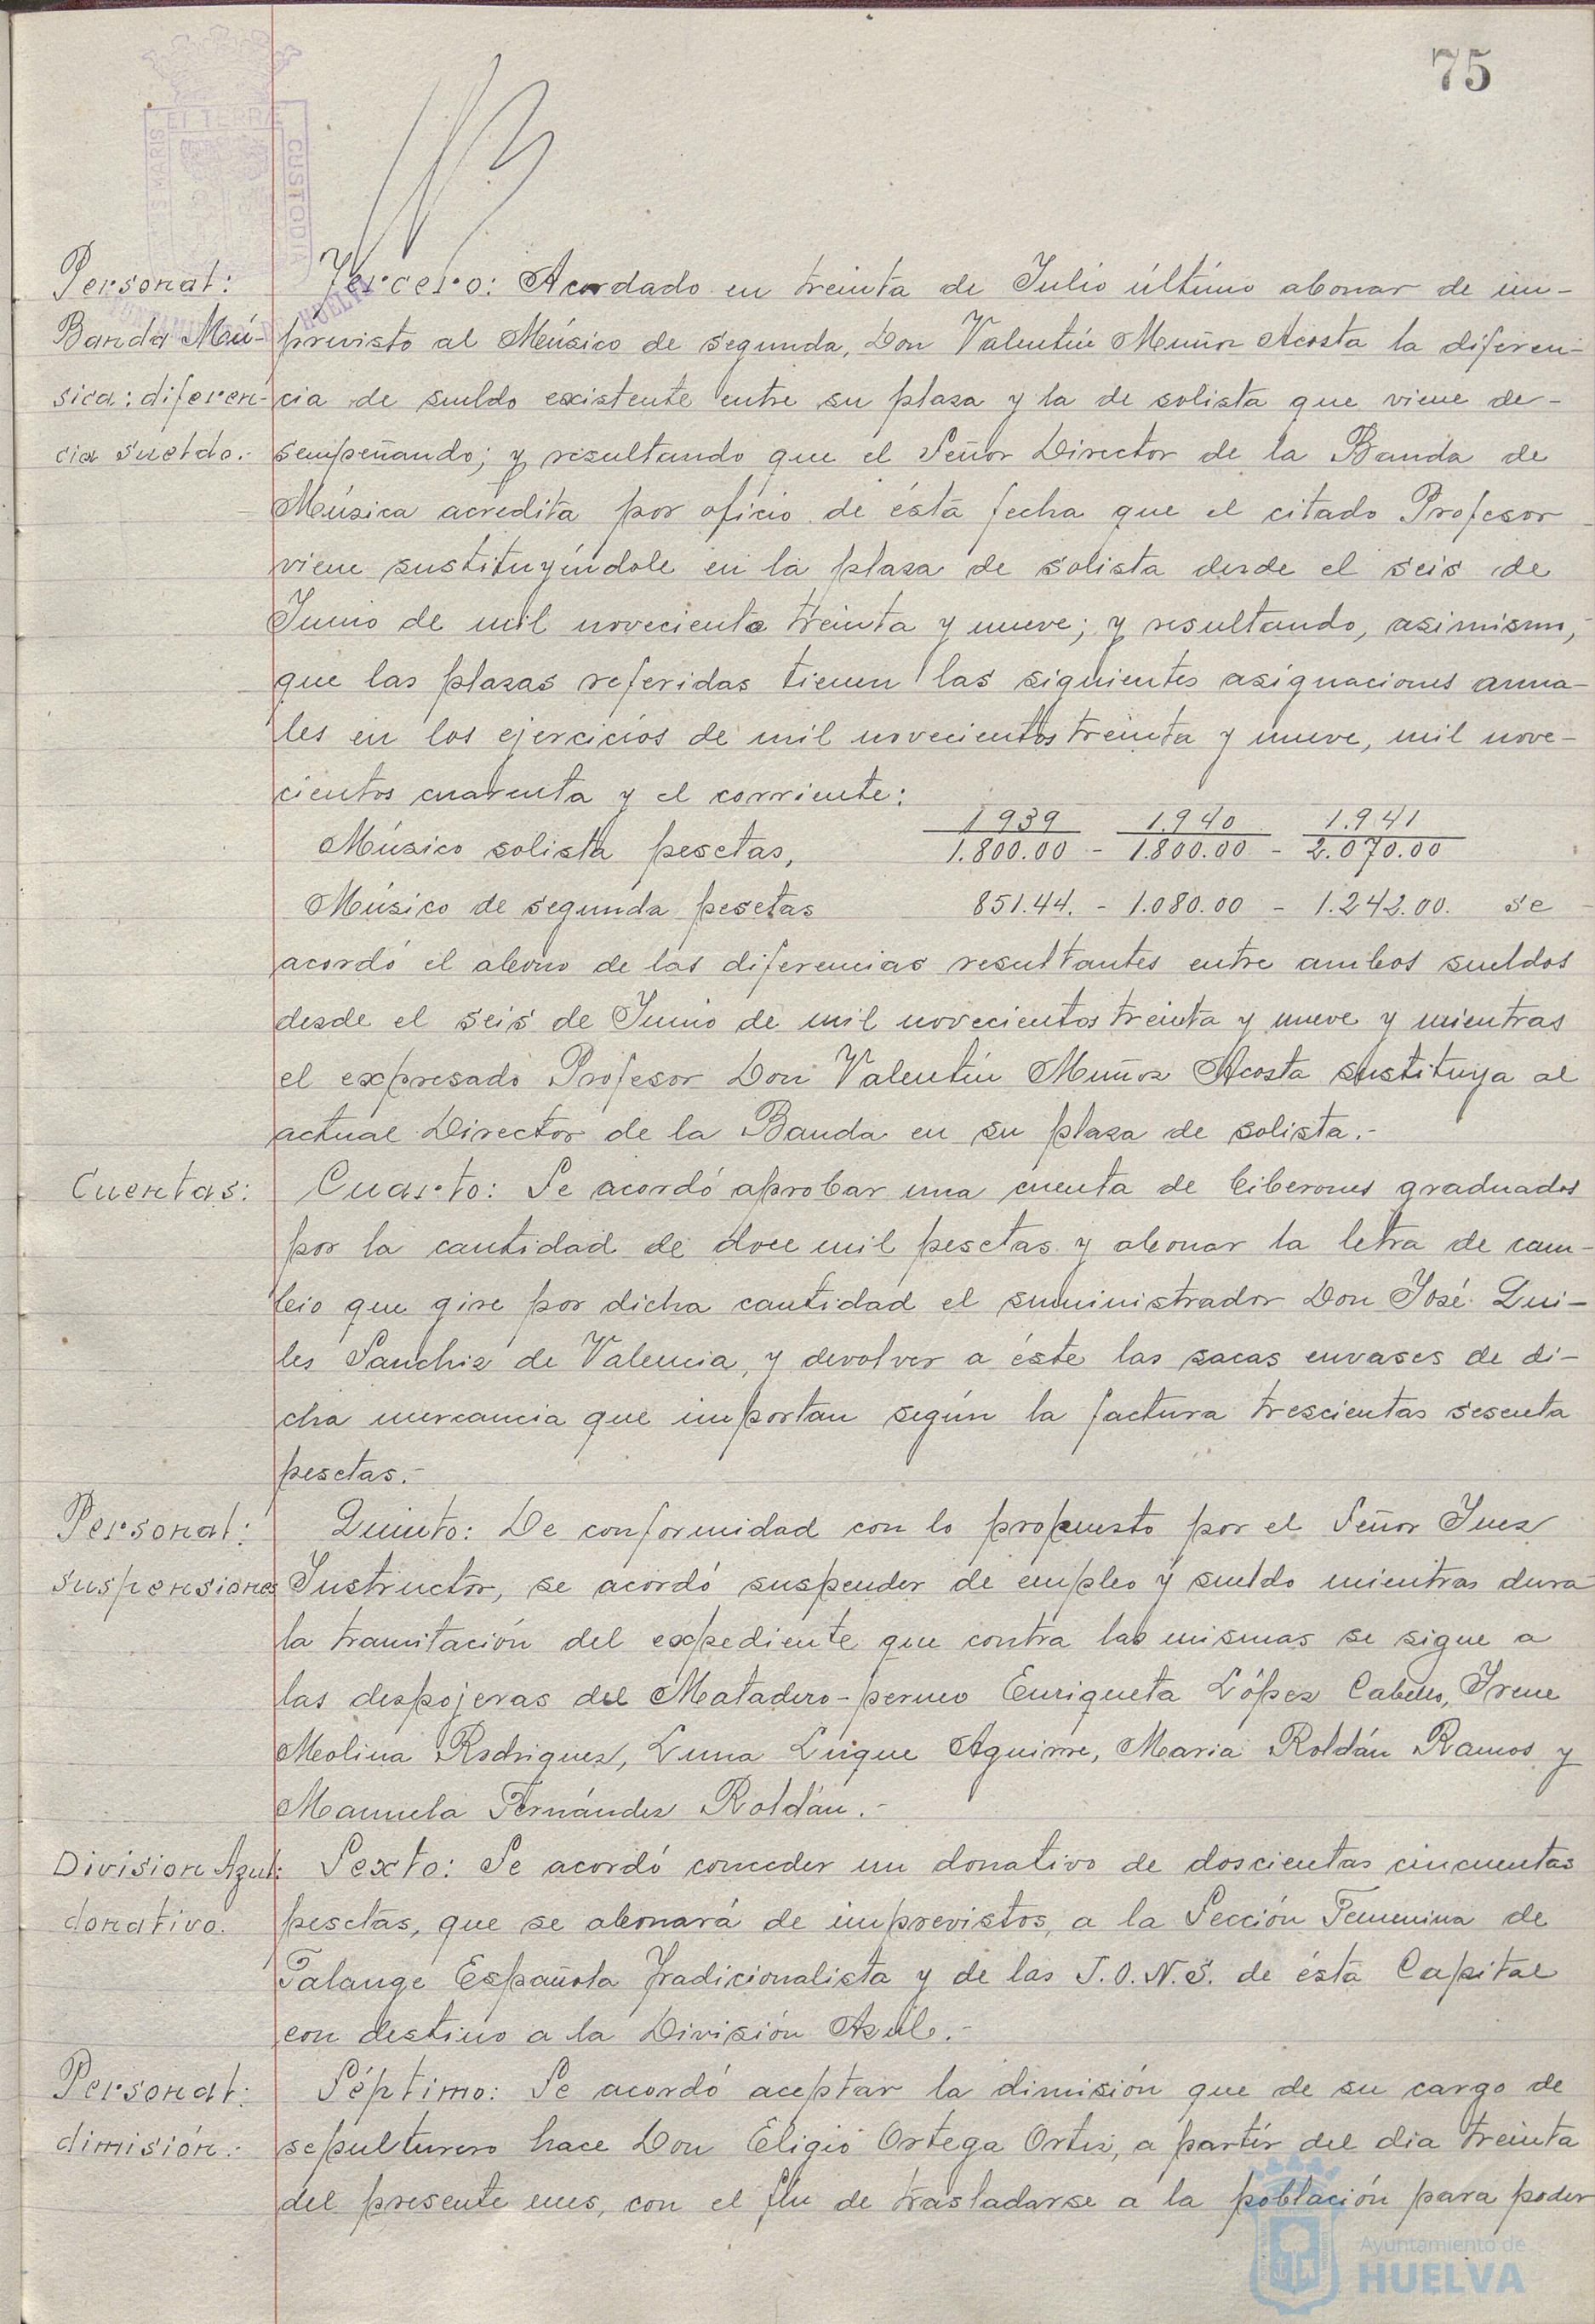 75
PORTUS MARIS
ET TERRÆ
CUSTODIA
AYUNTAMIENTO DE HUELVA
Personal:
Banda Mú-
sica: diferen-
cia sueldo.-
Tercero: Acordado en treinta de Julio último abonar de im-
previsto al Músico de segunda, Don Valentín Muñoz Acosta la diferen-
cia de sueldo existente entre su plaza y la de solista que viene de-
sempeñando; y resultando que el Señor Director de la Banda de
Música acredita por oficio de ésta fecha que el citado Profesor
viene sustituyéndole en la plaza de solista desde el seis de
Junio de mil novecienta treinta y nueve; y resultando, asimismo,
que las plazas referidas tienen las siguientes asignaciones anua-
les en los ejercicios de mil novecientos treinta y nueve, mil nove-
cientos cuarenta y el corriente:
1939 1.940 1.941
Músico solista pesetas, 1.800.00 - 1.800.00 - 2.070.00
Músico de segunda pesetas 851.44. - 1.080.00 - 1.242.00. se
acordó el abono de las diferencias resultantes entre ambos sueldos
desde el seis de Junio de mil novecientos treinta y nueve y mientras
el expresado Profesor Don Valentín Muñoz Acosta sustituya al
actual Director de la Banda en su plaza de solista.-
Cuentas:
Cuarto: Se acordó aprobar una cuenta de biberones graduados
por la cantidad de doce mil pesetas y abonar la letra de cam-
bio que gire por dicha cantidad el suministrador Don José Qui-
les Sanchiz de Valencia, y devolver a éste las sacas envases de di-
cha mercancia que importan según la factura trescientas sesenta
pesetas.-
Personal:
suspensiones
Quinto: De conformidad con lo propuesto por el Señor Juez
Instructor, se acordó suspender de empleo y sueldo mientras dura
la tramitación del expediente que contra las mismas se sigue a
las despojeras del Matadero-permo Enriqueta López Cabello, Irene
Molina Rodriguez, Luna Luque Aguirre, Maria Roldán Ramos y
Manuela Fernández Roldán.-
Division Azul:
donativo.
Sexto: Se acordó conceder un donativo de doscientas cincuentas
pesetas, que se abonará de imprevistos, a la Sección Femenina de
Falange Española Tradicionalista y de las J.O.N.S. de ésta Capital
con destino a la División Azul.-
Personal:
dimisión.-
Séptimo: Se acordó aceptar la dimisión que de su cargo de
sepulturero hace Don Eligio Ortega Ortiz, a partir del dia treinta
del presente mes, con el fin de trasladarse a la población para poder
Ayuntamiento de
HUELVA